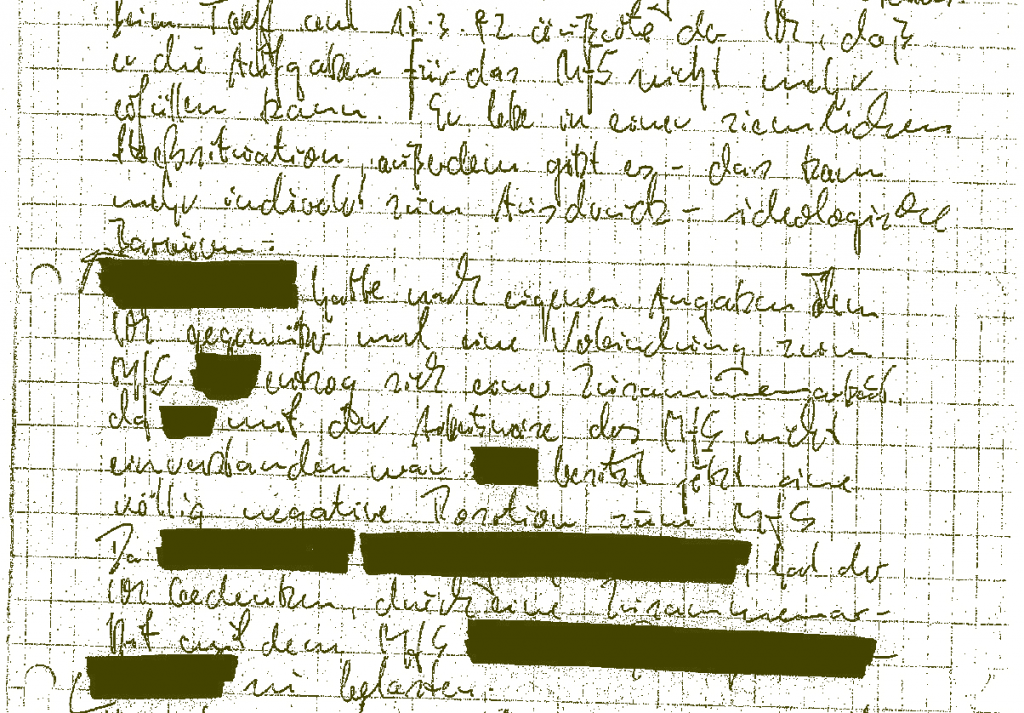 beim Treff am 17.3.82 äußerte der IM, daß
er die Aufgaben für das MfS nicht mehr
erfüllen kann. Er lebe in einer ziemlichen
Streßsituation, außerdem gibt es – das kam
mehr indirekt zum Ausdruck – ideologische
Barrieren.
hatte nach eigenen Angaben dem
IM gegenüber mal eine Verbindung zum
MfS. entzog sich einer Zusammenarbeit,
da mit der Arbeitsweise des MfS nicht
einverstanden war. besitzt jetzt eine
völlig negative Position zum MfS
Da , hat der
IM Bedenken, durch eine Zusammenar-
beit mit dem MfS
zu belasten.